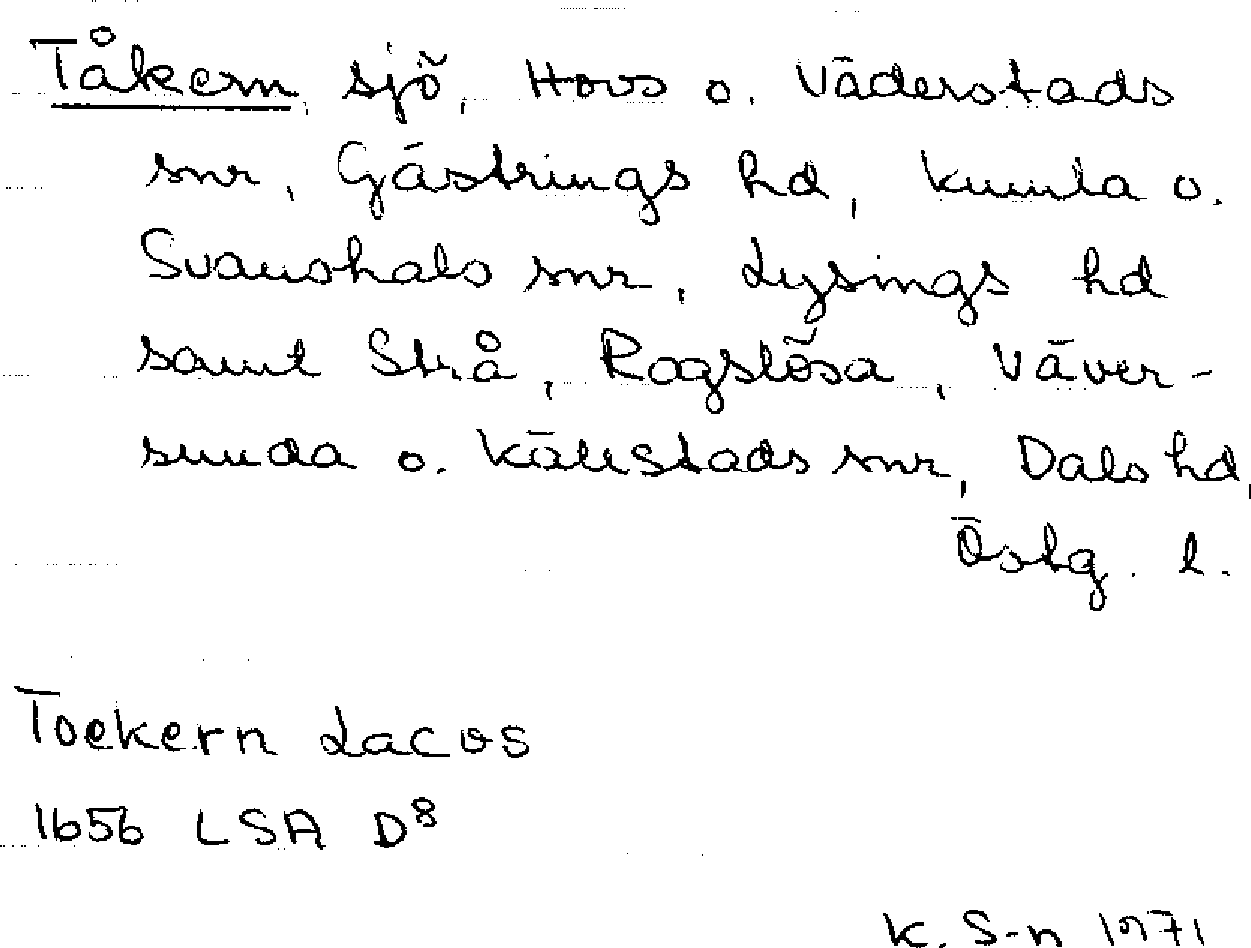 Tåkern, sjö, Hovs o. Väderstads
snr, Gästrings hd, Kumla o.
Svanshals snr, Lysings hd
samt Strå, Rogslösa, Väver-
sunda o. Källstads snr, Dals hd,
Östg. l.
Toekern Lacus
1656 LSA D8
K. S-n 1971